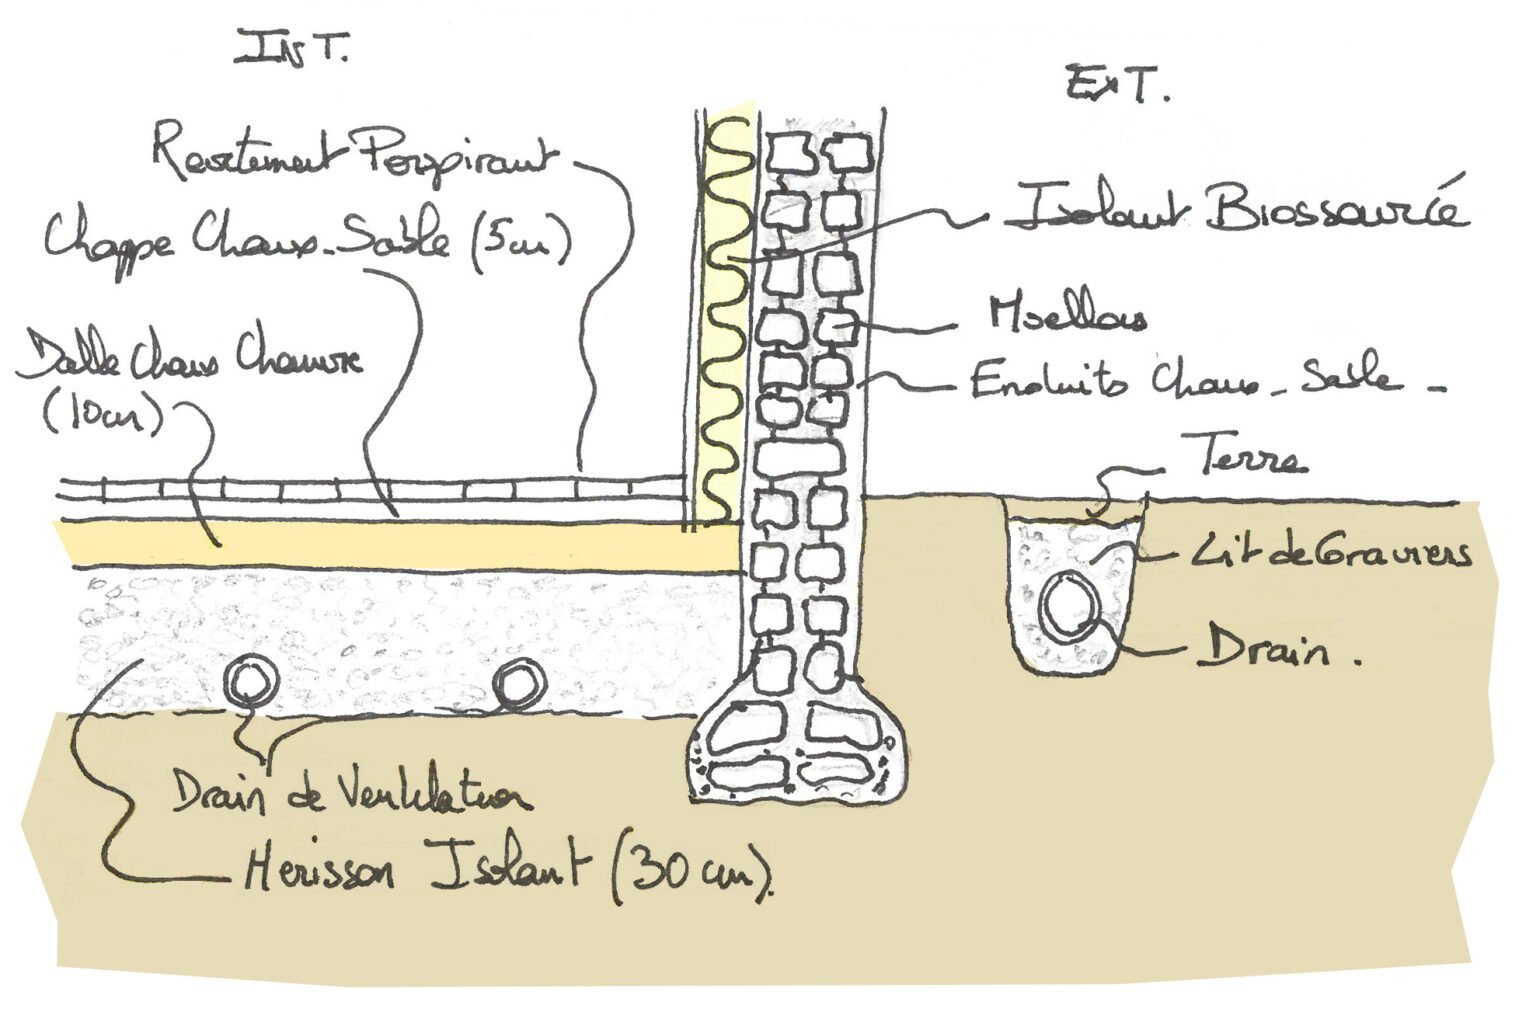 INT.
EXT.
Revetement Perspirant
Chappe Chaux-Sable (5cm)
Dalle Chaux Chanvre
(10cm)
Isolant Biossourcée
Moellons
Enduits Chaux-Sable-
Terre
Lit de Graviers
Drain.
Drain de Ventilation
Herisson Isolant (30 cm).